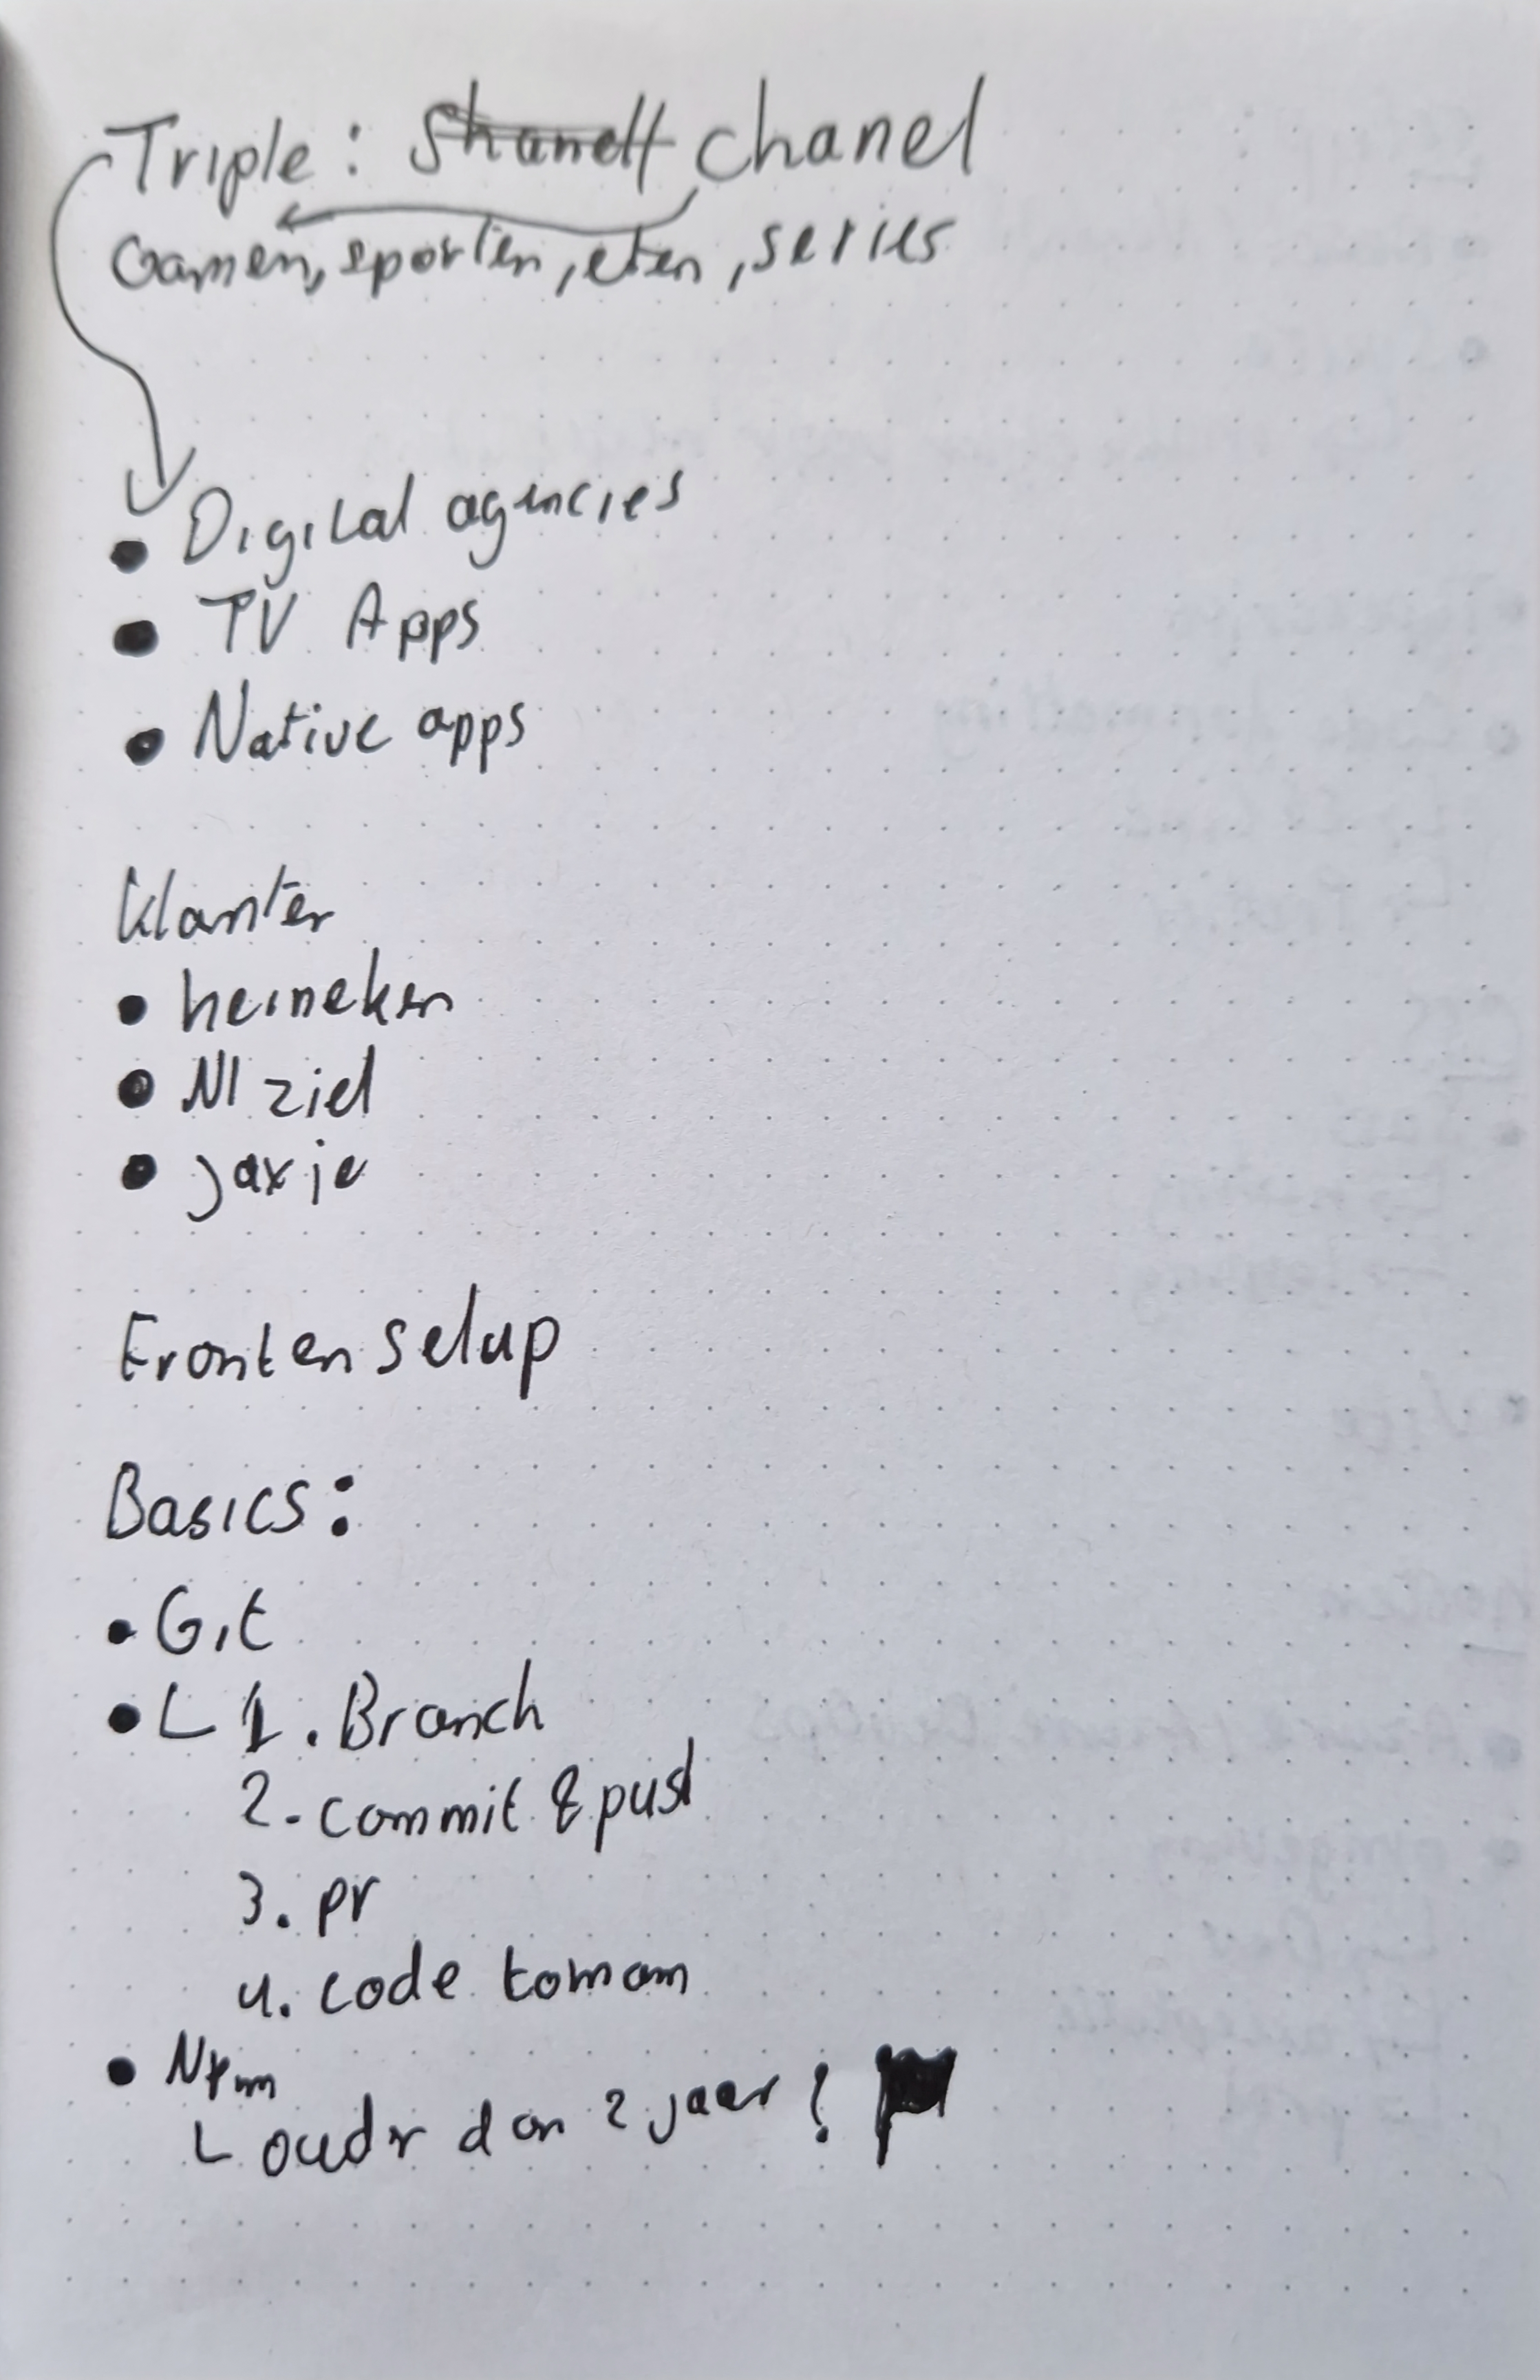 Triple: Shanell chanel
Gamen, sporten, eten, series
• Digital agencies
• TV Apps
• Native apps
Klanten
• heineken
• Nl ziet
• jaxje
Fronten setup
Basics:
• Git
• L 1. Branch
2. commit & push
3. pr
4. code
• Npm
L ouder dan 2 jaar!